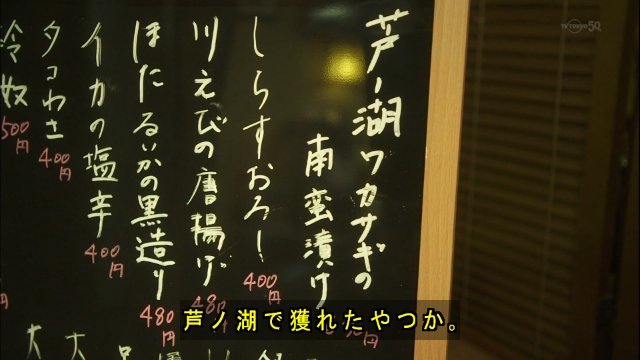 芦ノ湖ワカサギの
南蛮漬け
しらすおろし
400
円
川えびの唐揚げ
ほたるいかの黒造り
480
円
イカの塩辛
400
円
タコわさ
400
円
冷奴
500
円
芦ノ湖で獲れたやつか。